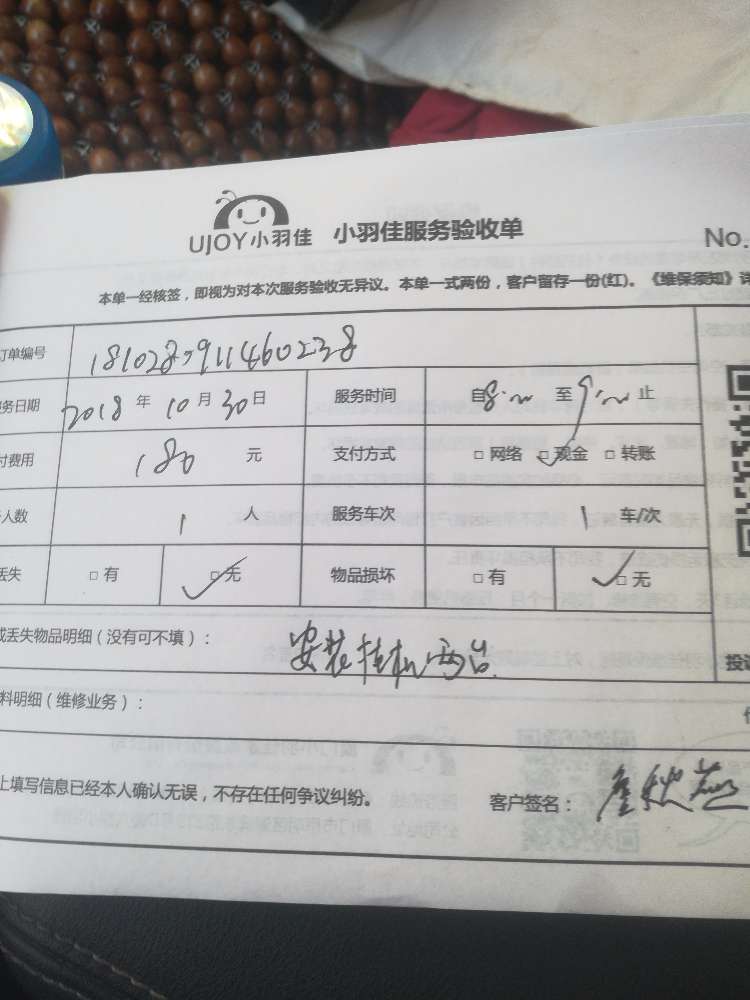 UJOY小羽佳 小羽佳服务验收单
No.
本单一经核签，即视为对本次服务验收无异议。本单一式两份，客户留存一份(红)。《维保须知》详
订单编号
服务日期 2018 年 10 月 30 日 服务时间 自 至 止
付费用 180 元 支付方式 □ 网络 □ 现金 □ 转账
人数 1 人 服务车次 1 车/次
丢失 □ 有 □ 无 物品损坏 □ 有 □ 无
或丢失物品明细（没有可不填）： 安装挂机两台
料明细（维修业务）：
上填写信息已经本人确认无误，不存在任何争议纠纷。 客户签名：